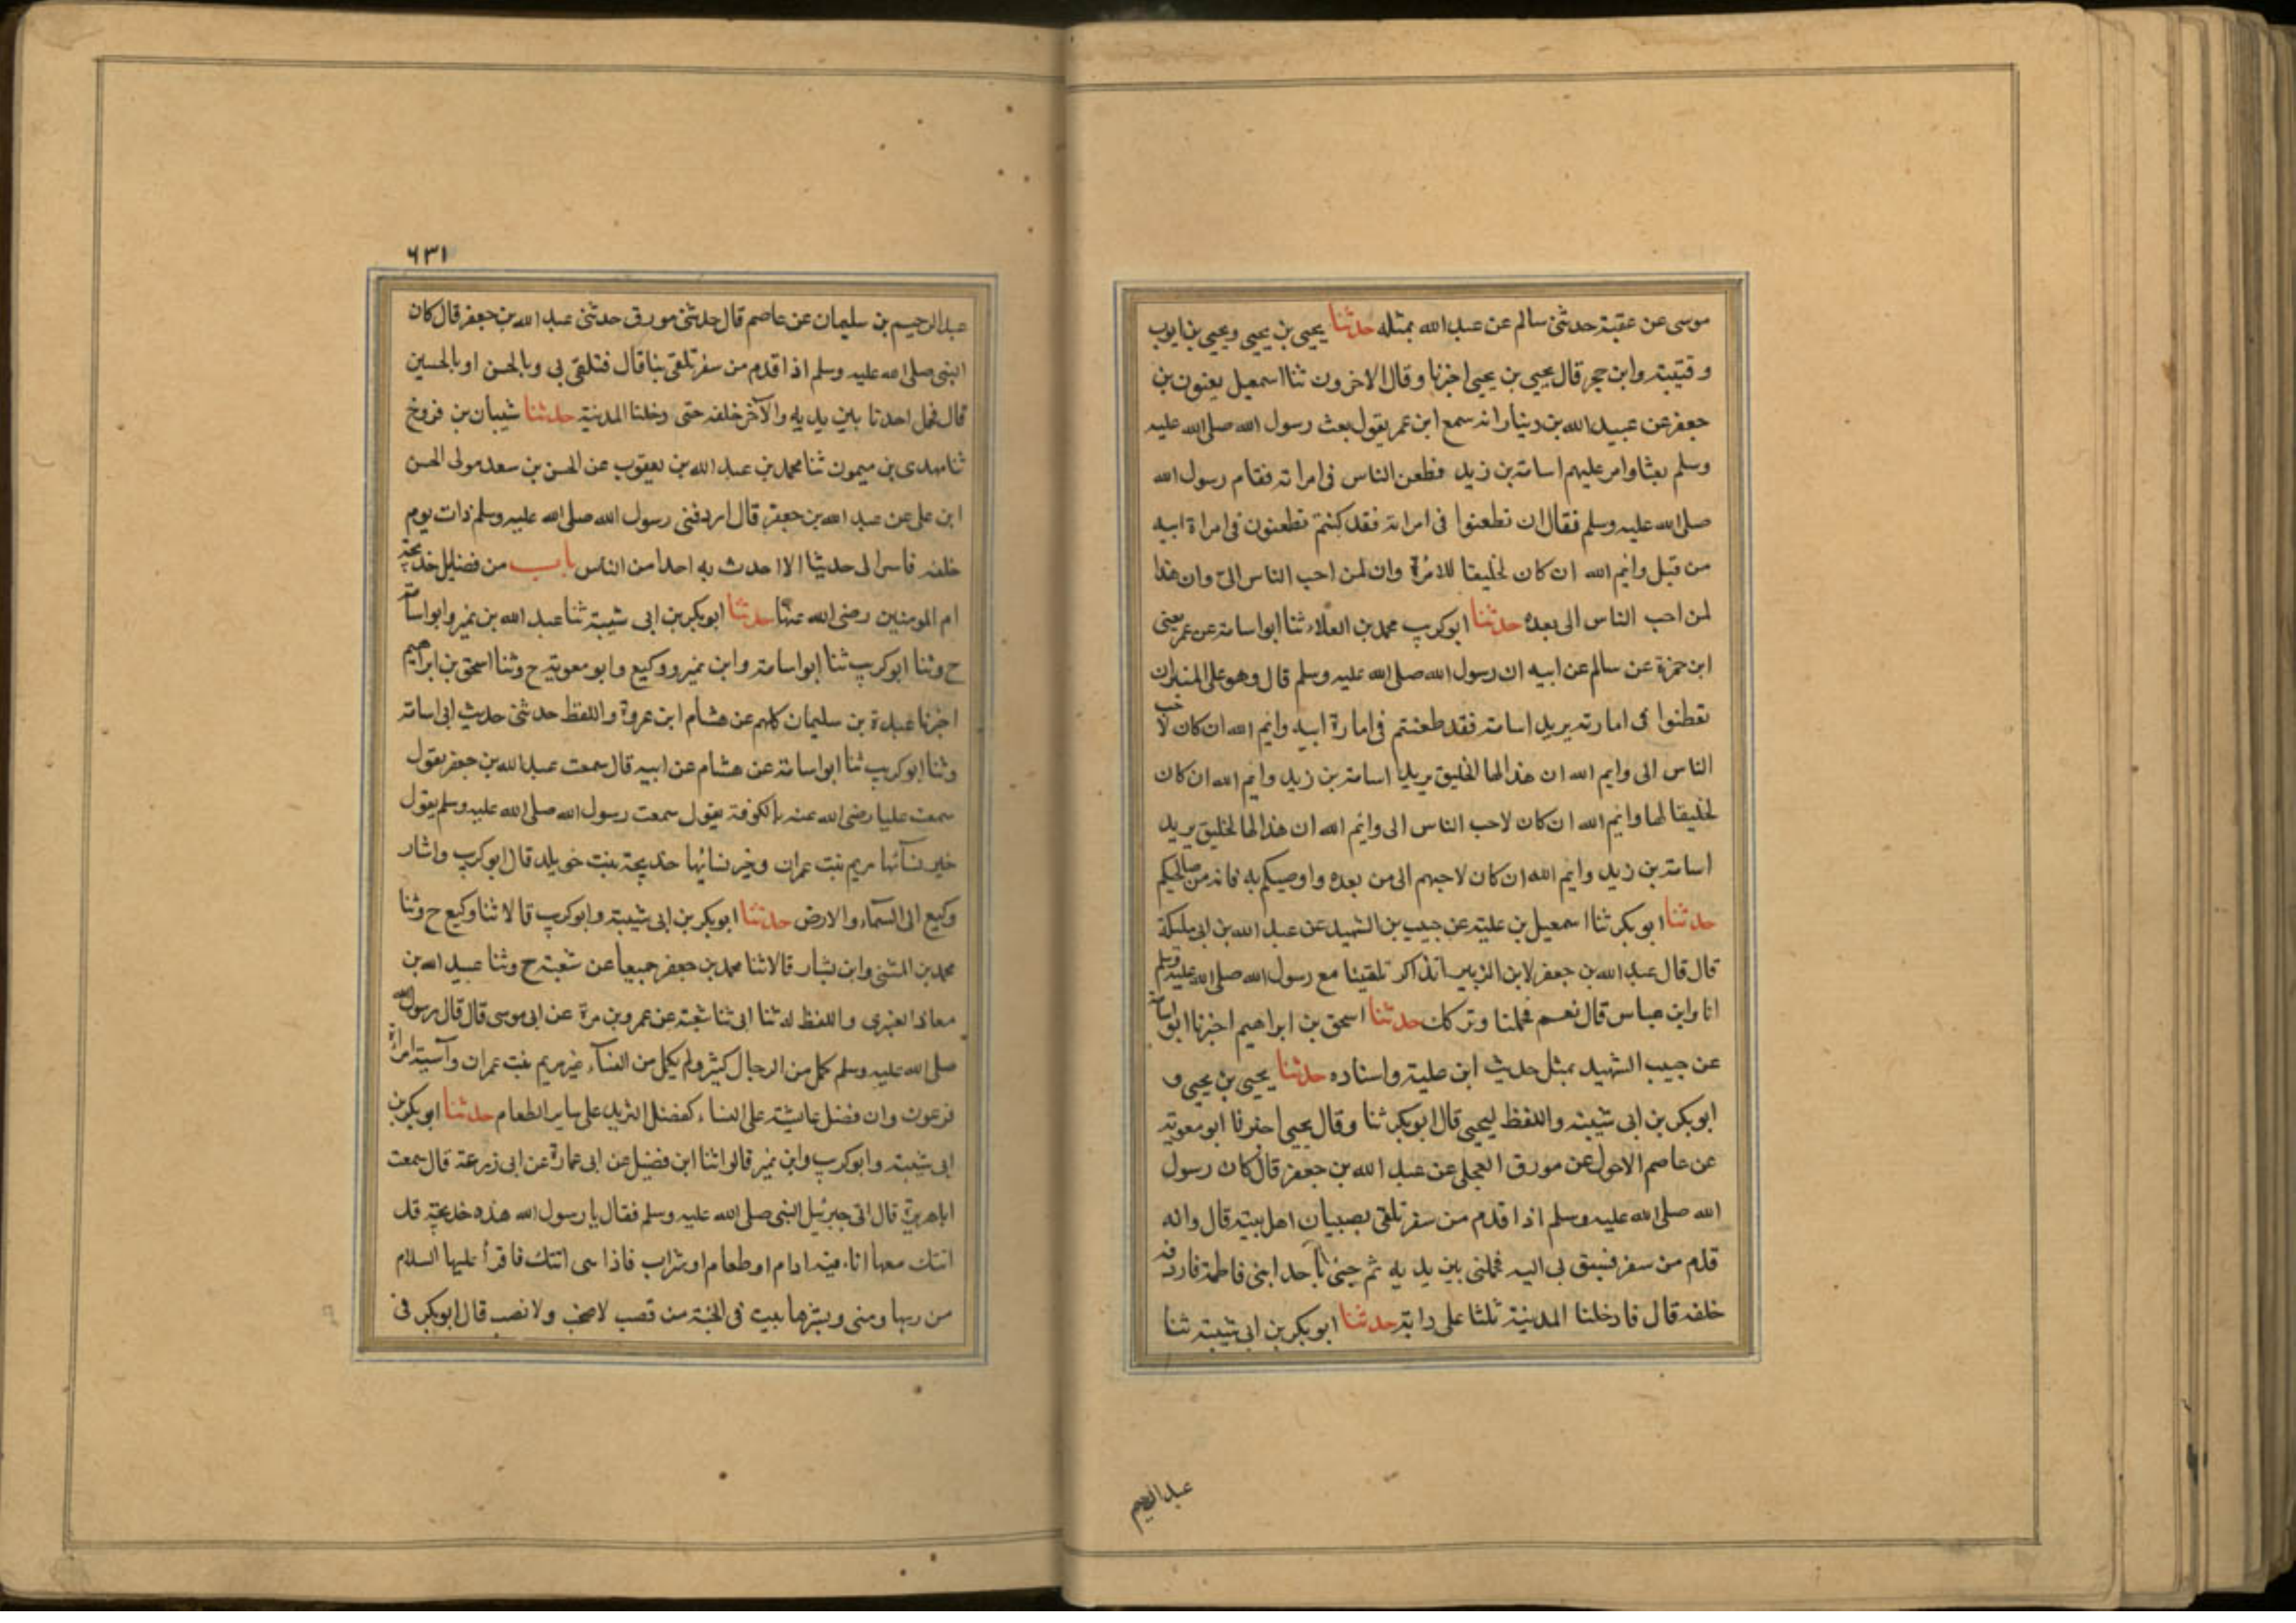 موسى عن عقبة حدثنى سالم عن عبد الله بمثله حدثنا يحيى بن يحيى ويحيى بن ايوب
وقتيبة وابن حجر قال يحيى بن يحيى اخبرنا وقال الاخرون ثنا اسمعيل يعنون بن
جعفر عن عبيد الله بن دينار انه سمع ابن عمر يقول بعث رسول الله صلى الله عليه
وسلم بعثا وامر عليهم اسامة بن زيد فطعن الناس فى امراته فقام رسول الله
صلى الله عليه وسلم فقال ان تطعنوا فى امراته فقد كنتم تطعنون فى امراة ابيه
من قبل وايم الله ان كان لخليقا للامرة وان لمن احب الناس الى وان هذا
لمن احب الناس الى بعده حدثنا ابوكريب محمد بن العلاء ثنا ابو اسامة عن عمر يعنى
ابن حمزة عن سالم عن ابيه ان رسول الله صلى الله عليه وسلم قال وهو على المنبر ان
تطعنوا فى امارته يريد اسامة فقد طعنتم فى امارة ابيه وايم الله ان كان لاحب
الناس الى وايم الله ان هذا لها لخليق يريد اسامة بن زيد وايم الله ان كان
لخليقا لها وايم الله ان كان لاحب الناس الى وايم الله ان هذا لها لخليق يريد
اسامة بن زيد وايم الله ان كان لاحبهم الى من بعده واوصيكم به فانه من صالحيكم
حدثنا ابو بكر ثنا اسمعيل بن علية عن حبيب بن الشهيد عن عبد الله بن ابى مليكة
قال قال عبد الله بن جعفر لابن الزبير اتذاكر تلقينا مع رسول الله صلى الله عليه وسلم
انا وابن عباس قال نعم فحملنا وتركك حدثنا اسحق بن ابراهيم اخبرنا ابو اسامة
عن حبيب الشهيد بمثل حديث ابن علية واسناده حدثنا يحيى بن يحيى و
ابو بكر بن ابى شيبة واللفظ ليحيى قال ابوبكر ثنا وقال يحيى اخبرنا ابو معوية
عن عاصم الاحول عن مورق العجلى عن عبد الله بن جعفر قال كان رسول
الله صلى الله عليه وسلم اذا قدم من سفر تلقى بصبيان اهل بيته قال وانه
قدم من سفر فسبق بى اليه فحملنى بين يديه ثم جئ باحد ابنى فاطمة فاردفه
خلفه قال فادخلنا المدينة ثلثا على دابة حدثنا ابوبكر بن ابى شيبة ثنا
عبد الرحيم
٦٣١
عبد الرحيم بن سليمان عن عاصم قال حدثنى مورق حدثنى عبد الله بن جعفر قال كان
النبى صلى الله عليه وسلم اذا قدم من سفر تلقى بنا قال فتلقى بى وبالحسن او بالحسين
قال فحمل احدنا بين يديه والآخر خلفه حتى دخلنا المدينة حدثنا شيبان بن فروخ
ثنا مهدى بن ميمون ثنا محمد بن عبد الله بن يعقوب عن الحسن بن سعد مولى الحسن
ابن على عن عبد الله بن جعفر قال اردفنى رسول الله صلى الله عليه وسلم ذات يوم
خلفه فاسر الى حديثا الا احدث به احدا من الناس باب من فضايل خديجة
ام المومنين رضى الله عنها حدثنا ابوبكر بن ابى شيبة ثنا عبد الله بن نمير وابو اسامة
ح وثنا ابوكريب ثنا ابو اسامة وابن نمير ووكيع وابو معوية ح وثنا اسحق بن ابراهيم
اخبرنا عبدة بن سليمان كلهم عن هشام ابن عروة واللفظ حدثنى حديث ابى اسامة
وثنا ابوكريب ثنا ابو اسامة عن هشام عن ابيه قال سمعت عبد الله بن جعفر يقول
سمعت عليا رضى الله عنه بالكوفة يقول سمعت رسول الله صلى الله عليه وسلم يقول
خير نسآئها مريم بنت عمران وخير نسائها خديجة بنت خويلد قال ابوكريب واشار
وكيع الى السمآء والارض حدثنا ابوبكر بن ابى شيبة وابوكريب قالا ثنا وكيع ح وثنا
محمد بن المثنى وابن بشار قالا ثنا محمد بن جعفر جميعا عن شعبة ح وثنا عبيد الله بن
معاذ العنبرى واللفظ له ثنا ابى ثنا شعبة عن عمرو بن مرة عن ابى موسى قال قال رسول الله
صلى الله عليه وسلم كمل من الرجال كثير ولم يكمل من النسآء غير مريم بنت عمران وآسية امراة
فرعون وان فضل عايشة على النساء كفضل الثريد على ساير الطعام حدثنا ابوبكر بن
ابى شيبة وابوكريب وابن نمير قالوا ثنا ابن فضيل عن ابى عمارة عن ابى زرعة قال سمعت
اباهريرة قال اتى جبرئيل النبى صلى الله عليه وسلم فقال يا رسول الله هذه خديجة قد
اتتك معها اناء فيه ادام او طعام او شراب فاذا هى اتتك فاقرأ عليها السلام
من ربها ومنى وبشرها ببيت فى الجنة من قصب لا صخب ولا نصب قال ابوبكر فى